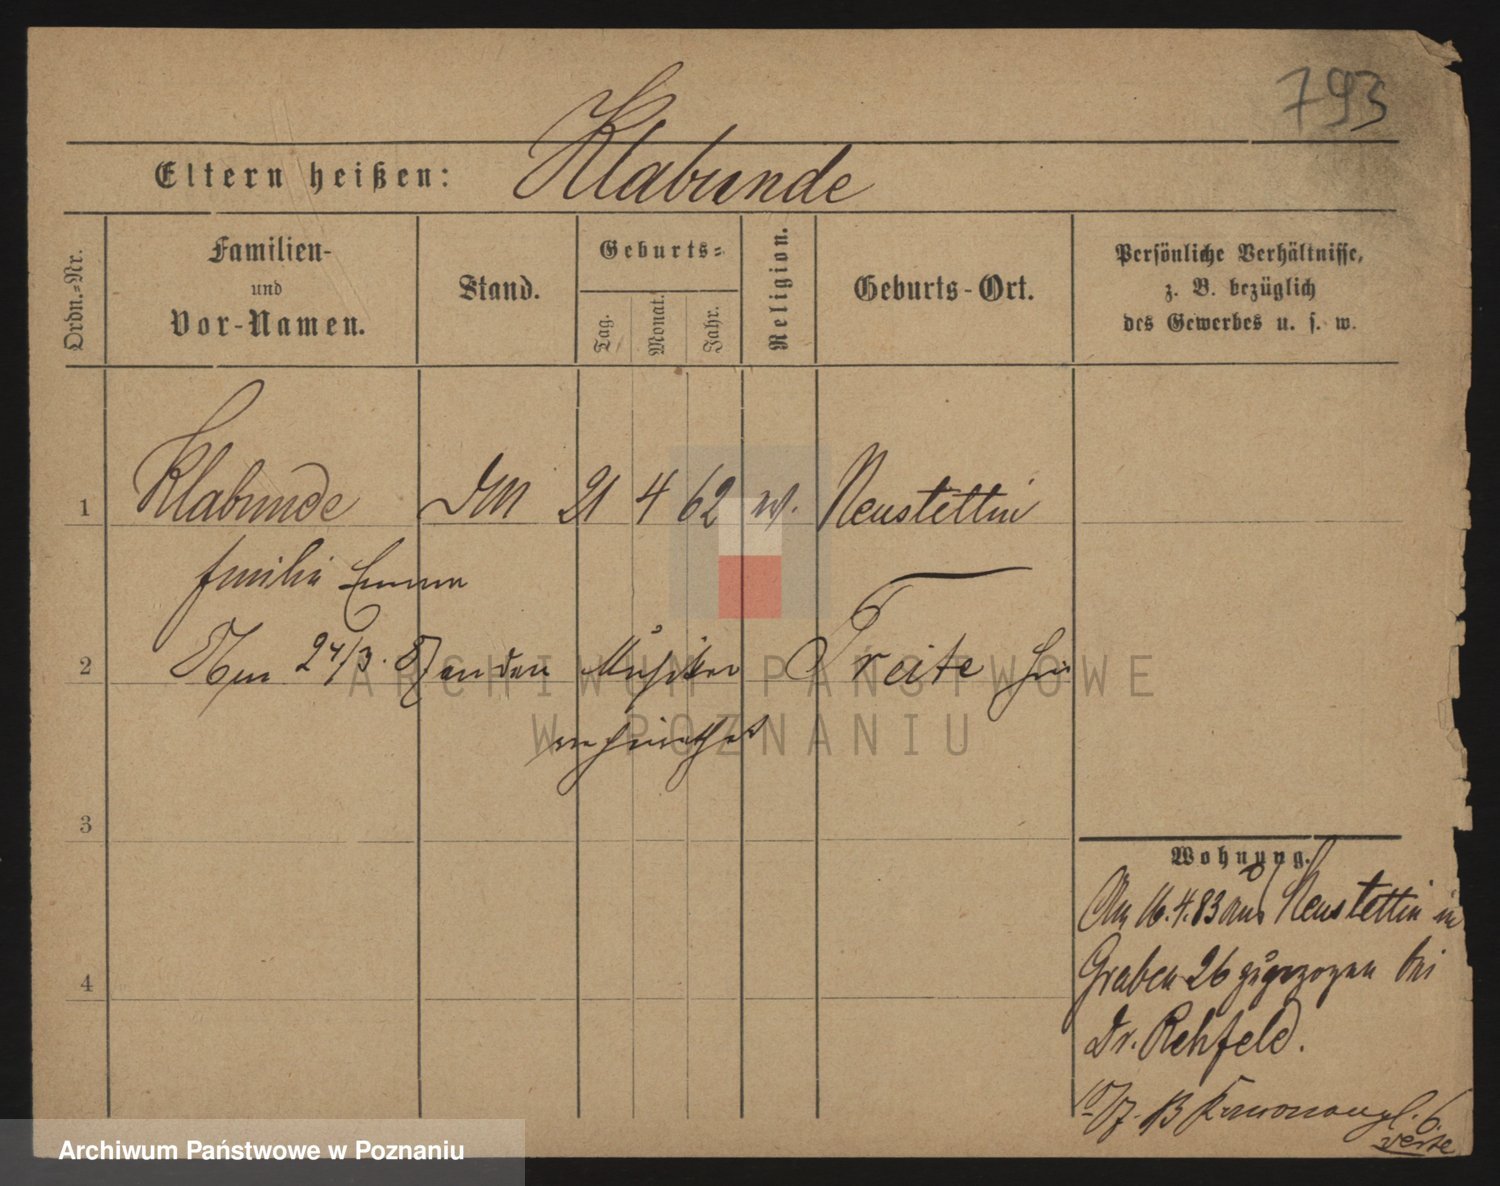 793
Eltern heißen: Klabunde
Ordn.-Nr.
Familien-
und
Vor-Namen.
Stand.
Geburts-
Tag.
Monat.
Jahr.
Religion.
Geburts-Ort.
Persönliche Verhältnisse,
z. B. bezüglich
des Gewerbes u. s. w.
1 Klabunde DM 21 4 62 ev. Neustettin
Emilie Emma
2 Am 24/3. 87 an den Musiker Treite hier
verheirathet
3
4
Wohnung.
Am 16.4.83 aus Neustettin in
Graben 26 zugezogen bei
Dr. Rehfeld.
verte
ARCHIWUM PAŃSTWOWE
W POZNANIU
Archiwum Państwowe w Poznaniu